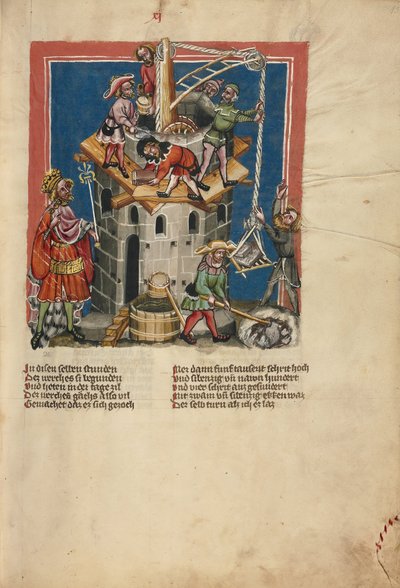 xi
In disen selben stunden
Des werches si begunden
Und heten in der tage zil
Des werches gæhs also vil
Gemachet daz ez sich gezoch
Mer dann funf tausent schrit hoch
Und sibenzig vn nawn hundert
Und vier schrit auz gesundert
Mit zwain vn sibenzig ekken waz
Der selb turn als ich ez laz